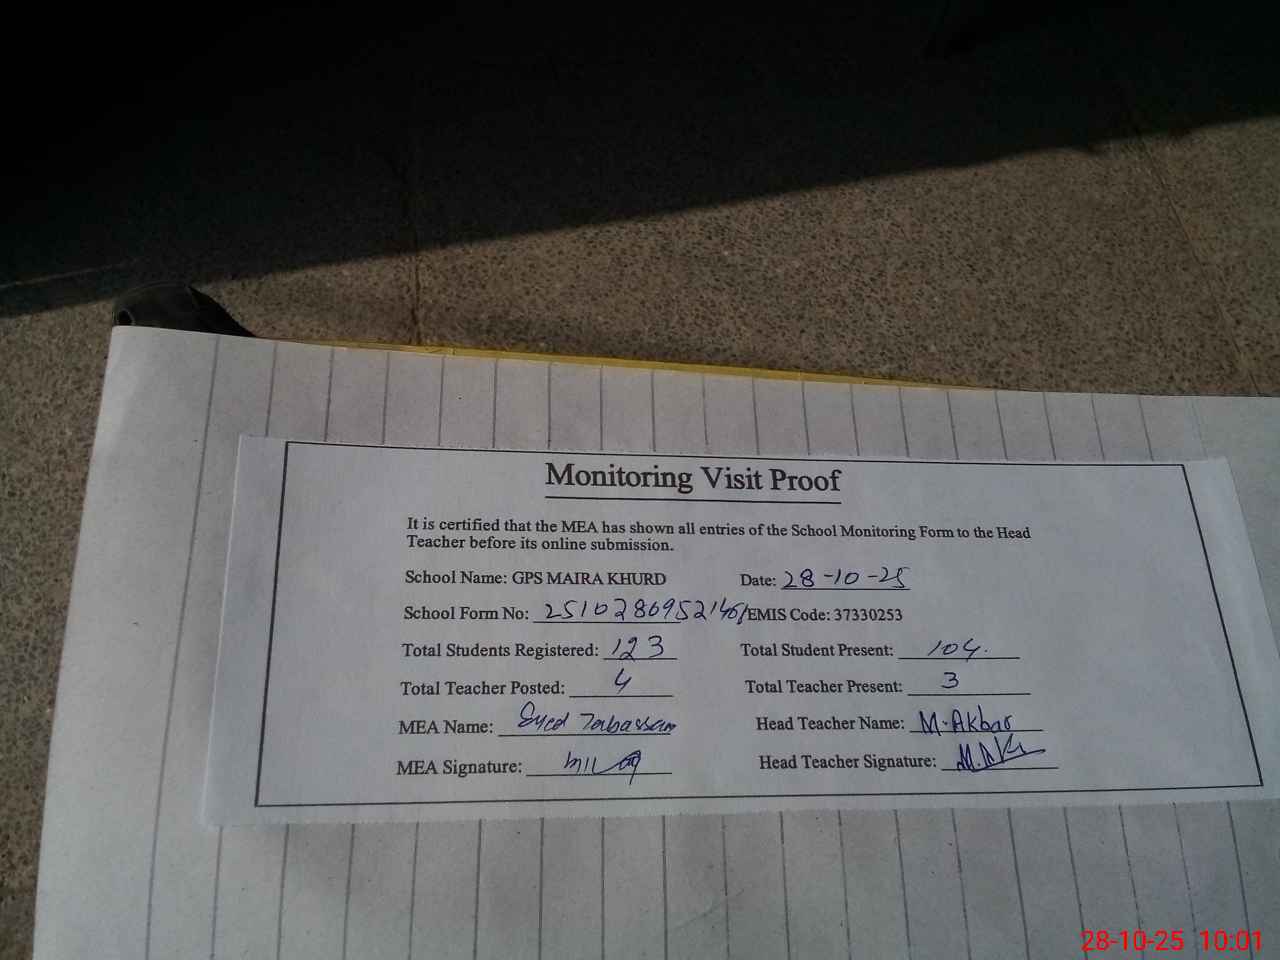 Monitoring Visit Proof
It is certified that the MEA has shown all entries of the School Monitoring Form to the Head
Teacher before its online submission.
School Name: GPS MAIRA KHURD Date: 28-10-25
School Form No: EMIS Code: 37330253
Total Students Registered: 123 Total Student Present: 104.
Total Teacher Posted: 4 Total Teacher Present: 3
MEA Name: Syed Tabassam Head Teacher Name: M.Akbar
MEA Signature: Head Teacher Signature:
28-10-25 10:01